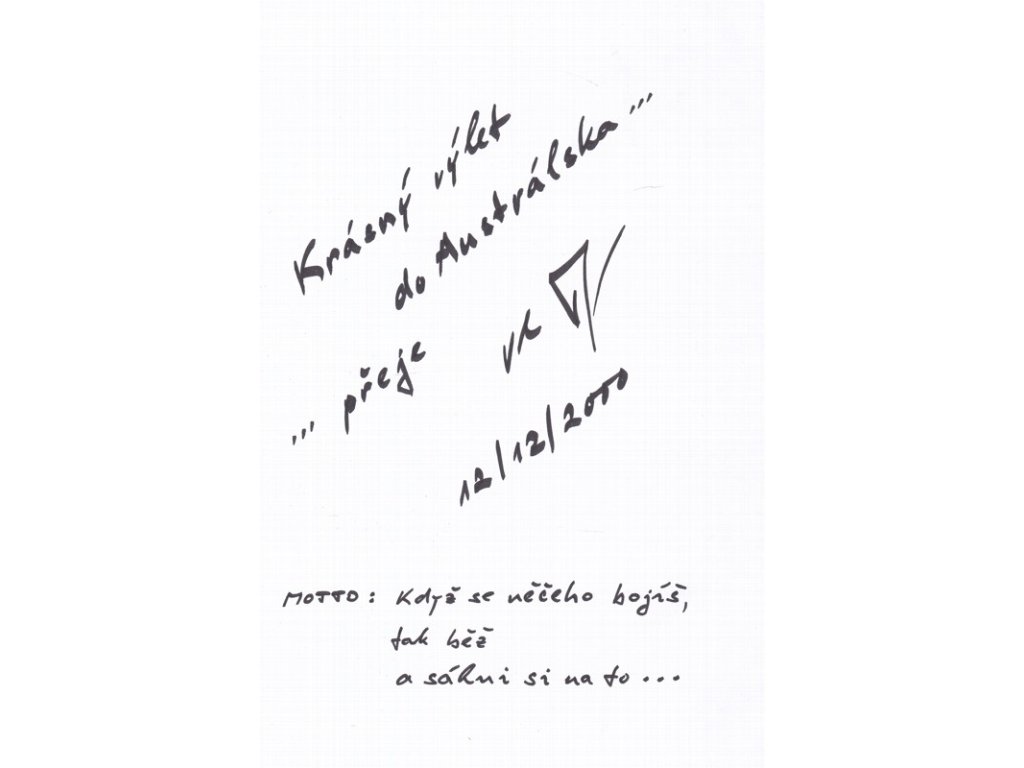 Krásný výlet
do Austrálska...
... přeje vh
12/12/2000
MOTTO: Když se něčeho bojíš,
tak běž
a sáhni si na to...